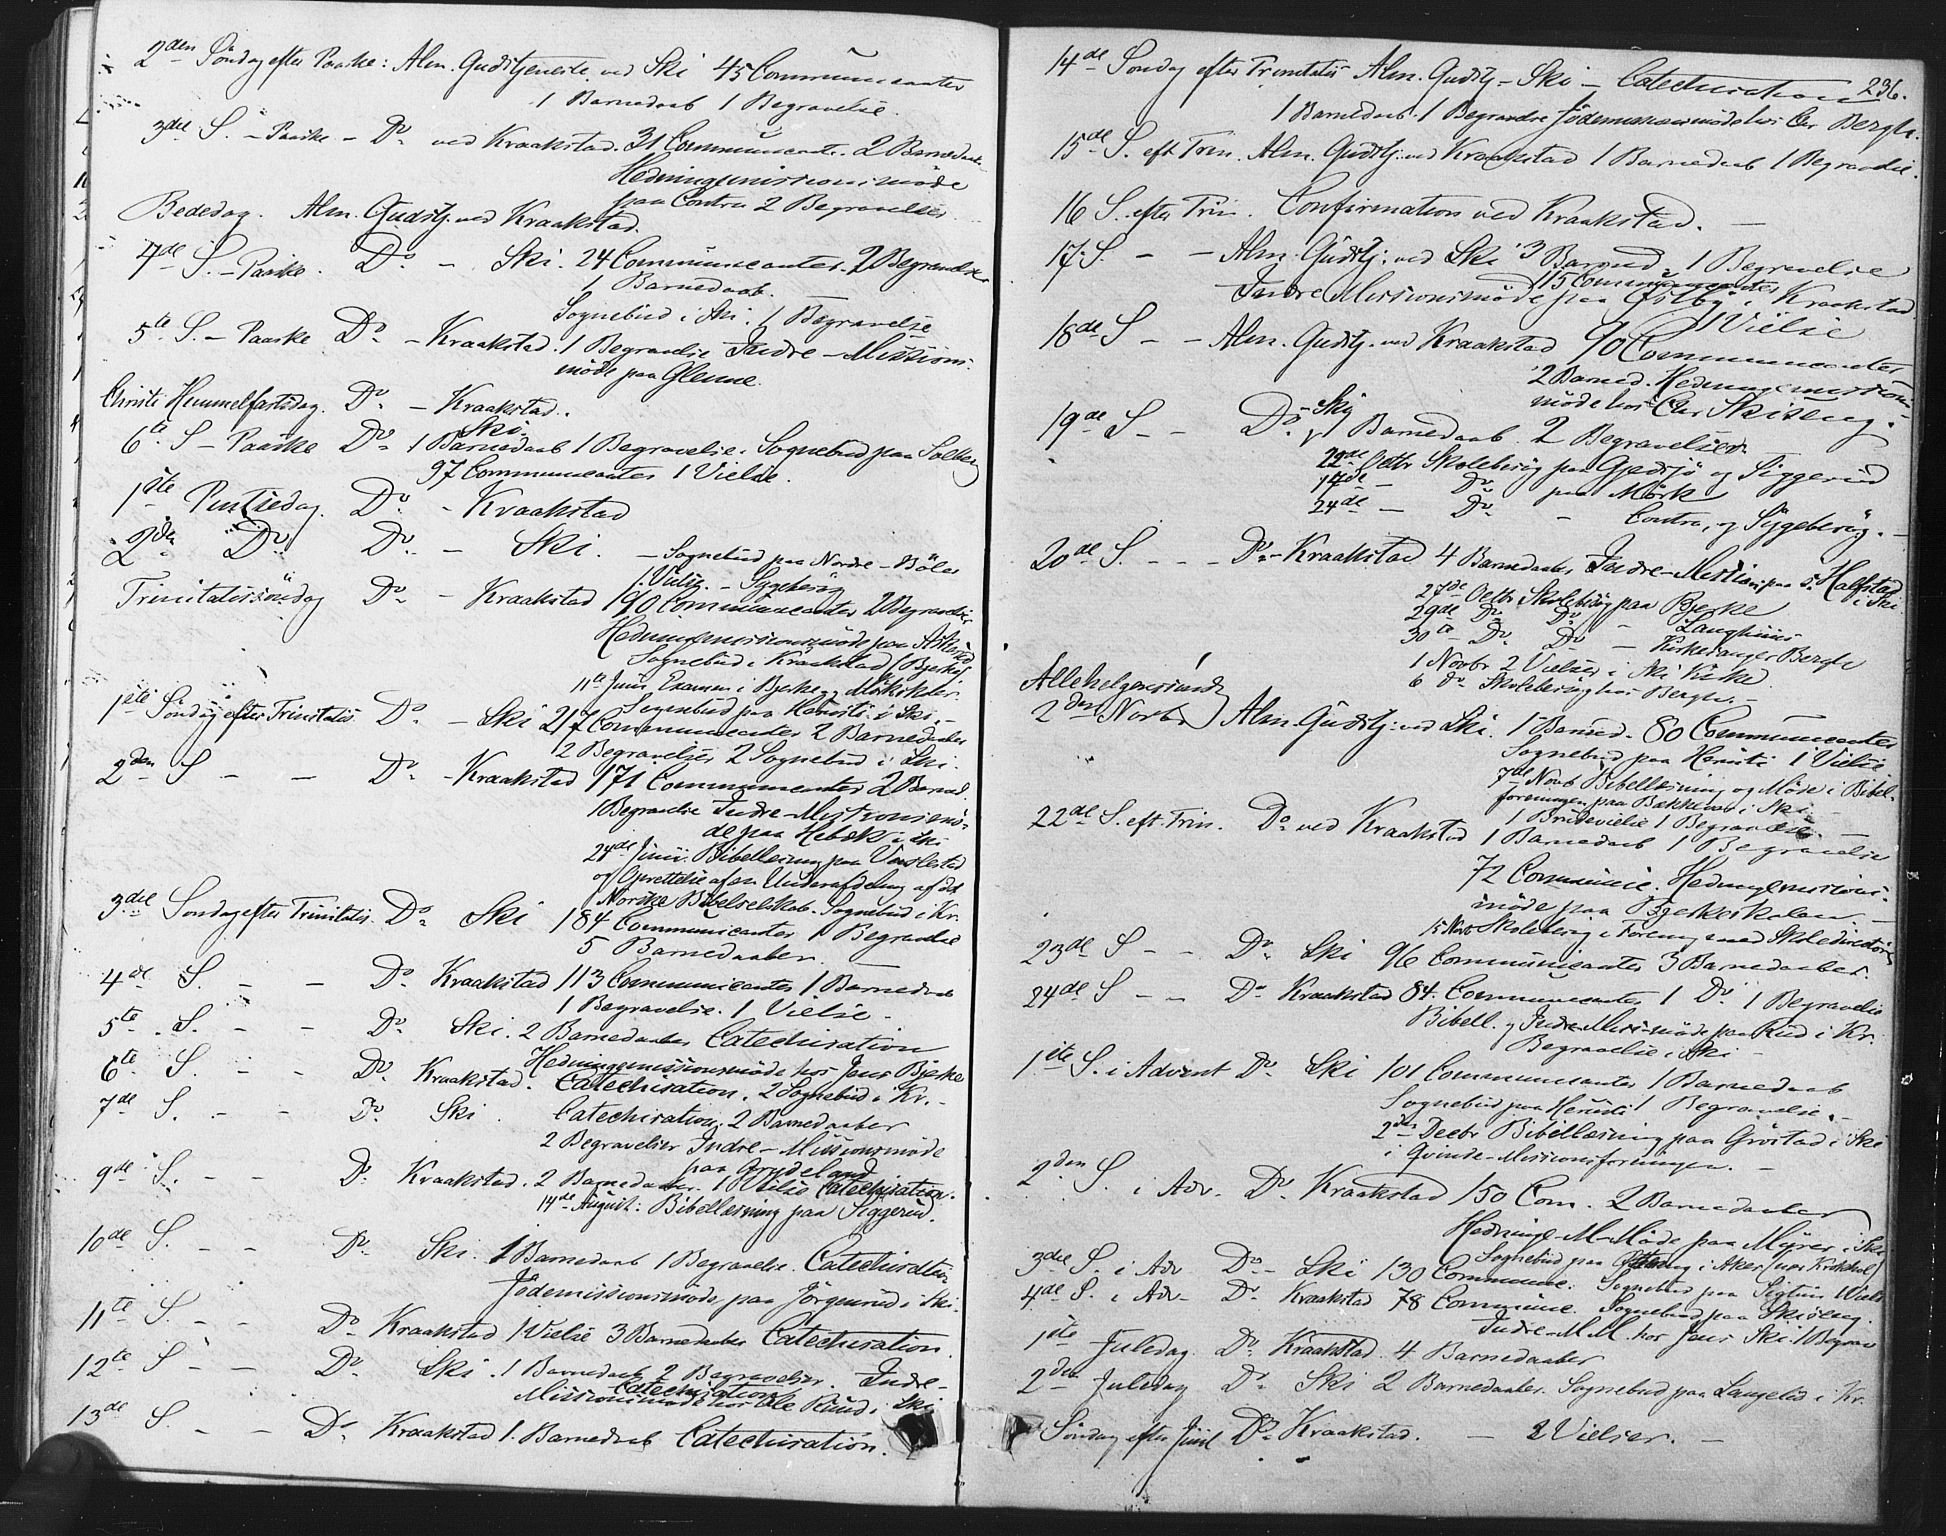 2den Søndag efter Paaske: Alm. Gudstjeneste ved Ski 45 Communicanter
1 Barnedaab 1 Begravelse.
3die S. - Paaske - Do ved Kraakstad. 31 Communicanter. 2 Barnedaab
Hedningemissionsmøde
paa Contra 2 Begravelser
Bededag. Alm. Gudstj. ved Kraakstad.
4de S. - Paaske. Do - Ski. 24 Communicanter. 2 Begravelser
1 Barnedaab.
Sognebud i Ski. 1 Begravelse
5te S. - Paaske Do - Kraakstad. 1 Begravelse Indre-Missions-
møde paa Glenne.
Christi Himmelfartsdag. Do - Kraakstad.
Ski.
6te S - Paaske Do 1 Barnedaab 1 Begravelse. Sognebud paa Solberg
97 Communicanter 1 Vielse.
1ste Pintsedag. Do - Kraakstad
2den Do Do - Ski.
- Sognebud paa Nordre-Bøler
1 Vielse. - Sygebesøg
Trinitatissøndag Do - Kraakstad 190 Communicanter 2 Begravelser
Hedningemissionsmøde paa
Sognebud i Kraakstad (Bjerke)
11te Juni Examen i Bjerke og Mørk skoler.
Sognebud paa Hensti i Ski. -
1ste Søndag efter Trinitatis Do - Ski 217 Communicanter 2 Barnedaaber
2 Begravelser 2 Sognebud i Ski.
2den S - - Do - Kraakstad 171 Communicanter 2 Barned.
1 Begravelse Indre-Missionsmø-
de paa Hebæk i Ski
24de Juni: Bibellæsning paa
og Oprettelse af en Underafdeling af det
Norske Bibelselskab. Sognebud i Kr.
3die Søndag efter Trinitatis. Do Ski 184 Communicanter 1 Begravelse
5 Barnedaaber.
4de S. - - Do Kraakstad 113 Communicanter 1 Barnedaab
1 Begravelse. 1 Vielse -
5te S. - - Do Ski. 2 Barnedaaber Catechisation
Hedningemissionsmøde hos Jens Bjerke
6te S. - - Do Kraakstad. Catechisation. 2 Sognebud i Kr. -
7de S. - - Do Ski. Catechisation. 2 Barnedaaber
2 Begravelser Indre-Missionsmøde
paa Grydeland
9de S. - - Do Kraakstad. 2 Barnedaaber. 1 Vielse Catechisation.
14de August: Bibellæsning paa Siggerud.
10de S. - - Do Ski. 1 Barnedaab 1 Begravelse. Catechisation
Jødemissionsmøde paa Jørgenrud i Ski.
11te S. - - Do Kraakstad 1 Vielse 3 Barnedaaber Catechisation.
12te S - - Do Ski. 1 Barnedaab 2 Begravelser. Indre-
Catechisation
Missionsmøde hos Ole Ruud i Ski
13de S. - - Do Kraakstad 1 Barnedaab Catechisation.
236.
14de Søndag efter Trinitatis Alm. Gudstj. - Ski - Catechisation
1 Barnedaab. 1 Begravelse Jødemissionsmøde hos Chr Bergh.
15de S. eft Trin. Alm. Gudstj. ved Kraakstad 1 Barnedaab 1 Begravelse.
16 S. efter Trin. Confirmation ved Kraakstad. -
17. S. - - Alm. Gudstj. ved Ski 3 Barned 1 Begravelse
115 Communicanter
Indre Missionsmøde paa Østby i Kraakstad
1 Vielse
18de S - - Alm. Gudstj. ved Kraakstad 90 Communicanter
2 Barned. Hedningemissions-
møde hos Chr Skiseng.
19de S - - Do - Ski
1 Barnedaab. 2 Begravelser.
22de Octbr Skolebesøg paa Gjedsjø og Siggerud
17de - Do paa Mørk
24de - Do - Contra, og Sygebesøg. -
20de S. - - Do - Kraakstad 4 Barnedaaber Indre-Mission paa S. Halfstad
i Ski
27de Octbr Skolebesøg paa Bjerke
29de Do Do - Langhuus
30te Do Do - Kirkedanger Bergh
1 Novbr 2 Vielser i Ski Kirke
6 do Skolebesøg hos Bergh. -
Allehelgenssønd
2den Novbr Alm. Gudstj. ved Ski. 1 Barned. 80 Communicanter
Sognebud paa Hensti 1 Vielse
7de Novb Bibellæsning og Møde i Bibel-
foreningen paa Bækkevar i Ski -
1 Brudevielse 1 Begravelse. -
22de S. eft. Trin. Do ved Kraakstad 1 Barnedaab 1 Begravelse
72 Communic. Hedningemissions-
møde paa Bjerkeskolen -
15 Nov Skolebesøg i Forening med Skoledirectøren
23de S - - Do Ski 96 Communicanter 3 Barnedaaber.
24de S - - Do Kraakstad 84 Communicanter 1 Do 1 Begravelse
Bibell. og Indre-Miss-møde paa Rud i Kr.
Begravelse i Ski -
1ste S. i Advent Do Ski 101 Communicanter 1 Barnedaab
Sognebud paa Hensti 1 Begravelse. -
2den Decbr Bibellæsning paa Grøstad i Ski
i Qvinde-Missionsforeningen. -
2den S. i Adv. Do Kraakstad 150 Com. 2 Barnedaaber
Hedninge-M-Møde paa Myrer i Ski
Sognebud paa i Aker
3die S. i Adv Do - Ski 130 Commun. Sognebud paa
4de S. i Adv - Do Kraakstad 78 Commun. Sognebud paa Skiseng.
Indre-M.M. hos Jens Ski 1 Begrav
1ste Juledag. Do Kraakstad. 4 Barnedaaber
2den Juledag Do Ski 2 Barnedaaber. Sognebud paa Langelid i Kr.
Søndag efter Juul Do Kraakstad. - 2 Vielser. -